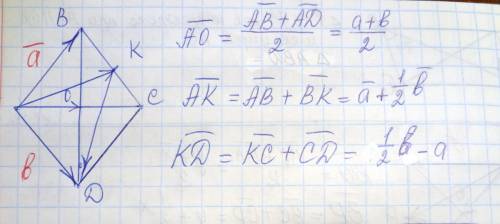 B
a̅
K
O
C
b
D
A̅O̅ = (A̅B̅ + A̅D̅)/2 = (a+b)/2
A̅K̅ = A̅B̅ + B̅K̅ = a̅ + ½ b̅
K̅D̅ = K̅C̅ + C̅D̅ = ½ b̅ - a